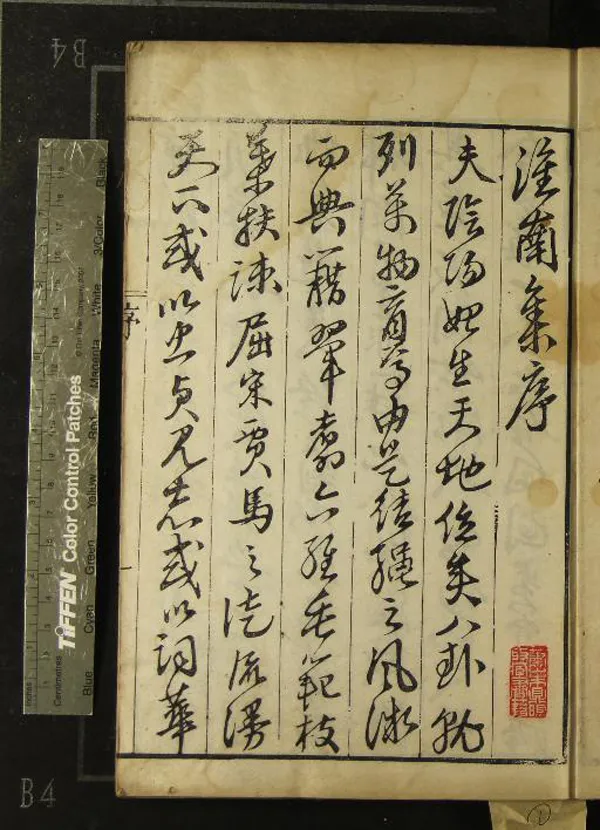 淮南集序
夫陰陽始生天地位矣八卦既
列萬物育焉由是結繩之風微
而典籍六經垂範枝
葉扶疎屈宋賈馬之徒流
天下或以忠貞見志或以詞華
序
B4
B4
TIFFEN Color Control Patches
Inches
Centimetres
Blue
Cyan
Green
Yellow
Red
Magenta
White
3/Color
Black